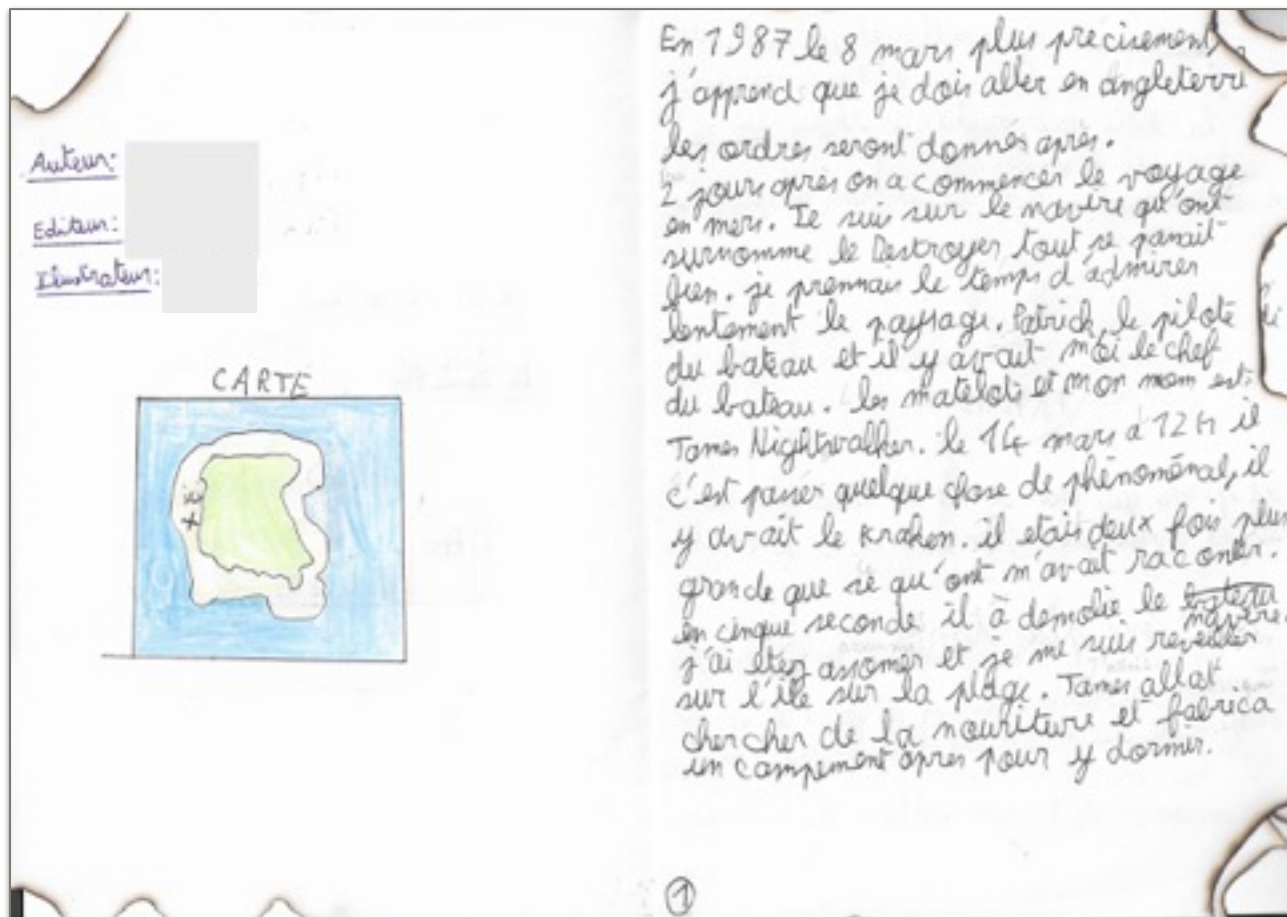 Auteur:
Editeur:
Illustrateur:
CARTE
ici
x
En 1987 le 8 mars plus precisement,
j'apprend que je dois aller en angleterre
les ordres seront donnés après.
2 jours après on a commencer le voyage
en mers. Je suis sur le navire qu'ont
surnomme le Destroyer tout se passait
bien. je prennais le temps d'admirer
lentement le paysage. Patrick, le pilote
du bateau et il y avait moi le chef
du bateau. les matelots et mon nom est:
James Nightwalker. le 14 mars à 12 h il
c'est passer quelque chose de phénoménal, il
y avait le Kraken. il etais deux fois plus
grande que se qu'ont m'avait raconter.
en cinque seconde il à demolie le bateau
navire.
j'ai etez assomer et je me suis reveiller
sur l'île sur la plage. James allat
chercher de la nouriture et fabrica
un campement après pour y dormir.
1